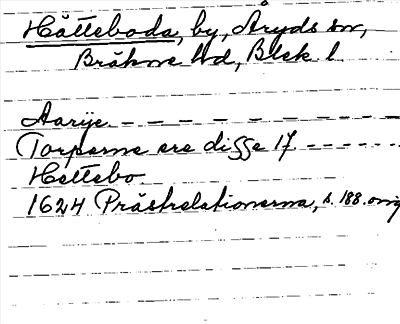 Hätteboda, by, Åryds sn,
Bräkne hd, Blek l
Aarÿe - - - - - - - - - - -
Torperne ere digge 17 - - - - - -
Hettebo
1624 Prästrelationerna, s. 188. orig